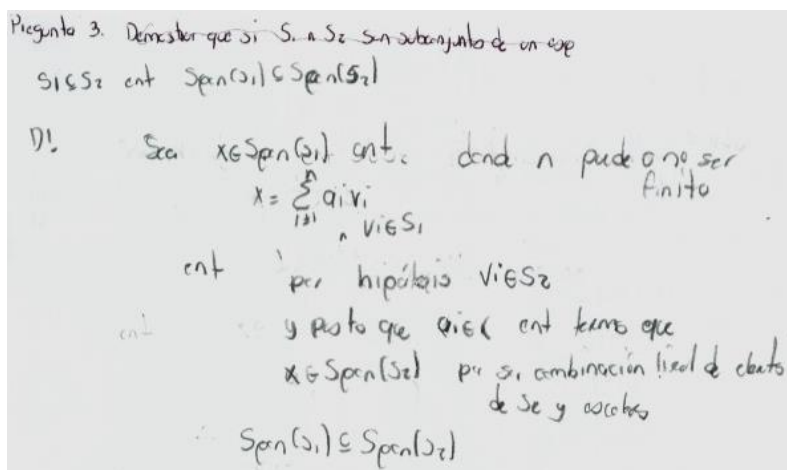 Pregunta 3. Demostrar que si S1 n S2 Son subconjunto de un esp
S1⊆S2 ent Span(S1)⊆Span(S2)
D!. Sea x∈Span(S1) ent. dond n pude o no ser finito
x = Σ_{i=1}^{n} aivi , vi∈S1
ent por hipótesis vi∈S2
ent y pusto que ai∈ ent temos que
x∈Span(S2) por ser combinación lineal de
de S2 y escalares
∴ Span(S1) ⊆ Span(S2)